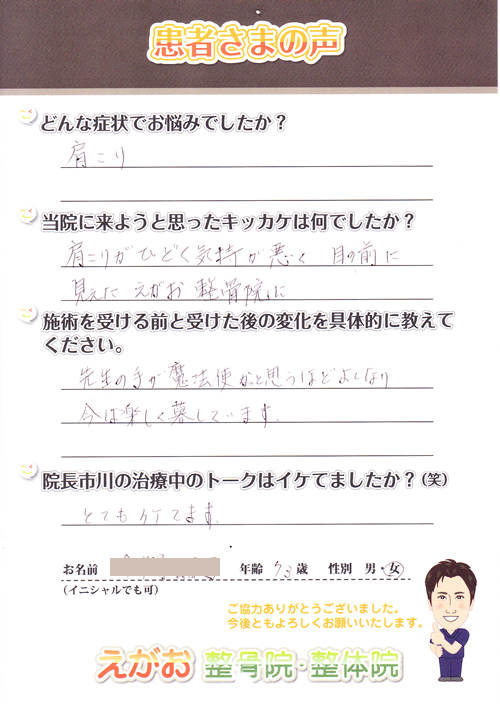 患者さまの声
どんな症状でお悩みでしたか？
肩こり
当院に来ようと思ったキッカケは何でしたか？
肩こりがひどく気持が悪く 目の前に
見えた えがお 整骨院に
施術を受ける前と受けた後の変化を具体的に教えて
ください。
先生の手が魔法使かと思うほどよくなり
今は楽しく暮しています。
院長市川の治療中のトークはイケてましたか？（笑）
とてもイケてます。
お名前 年齢 73歳 性別 男・女
（イニシャルでも可）
ご協力ありがとうございました。
今後ともよろしくお願いいたします。
えがお 整骨院・整体院